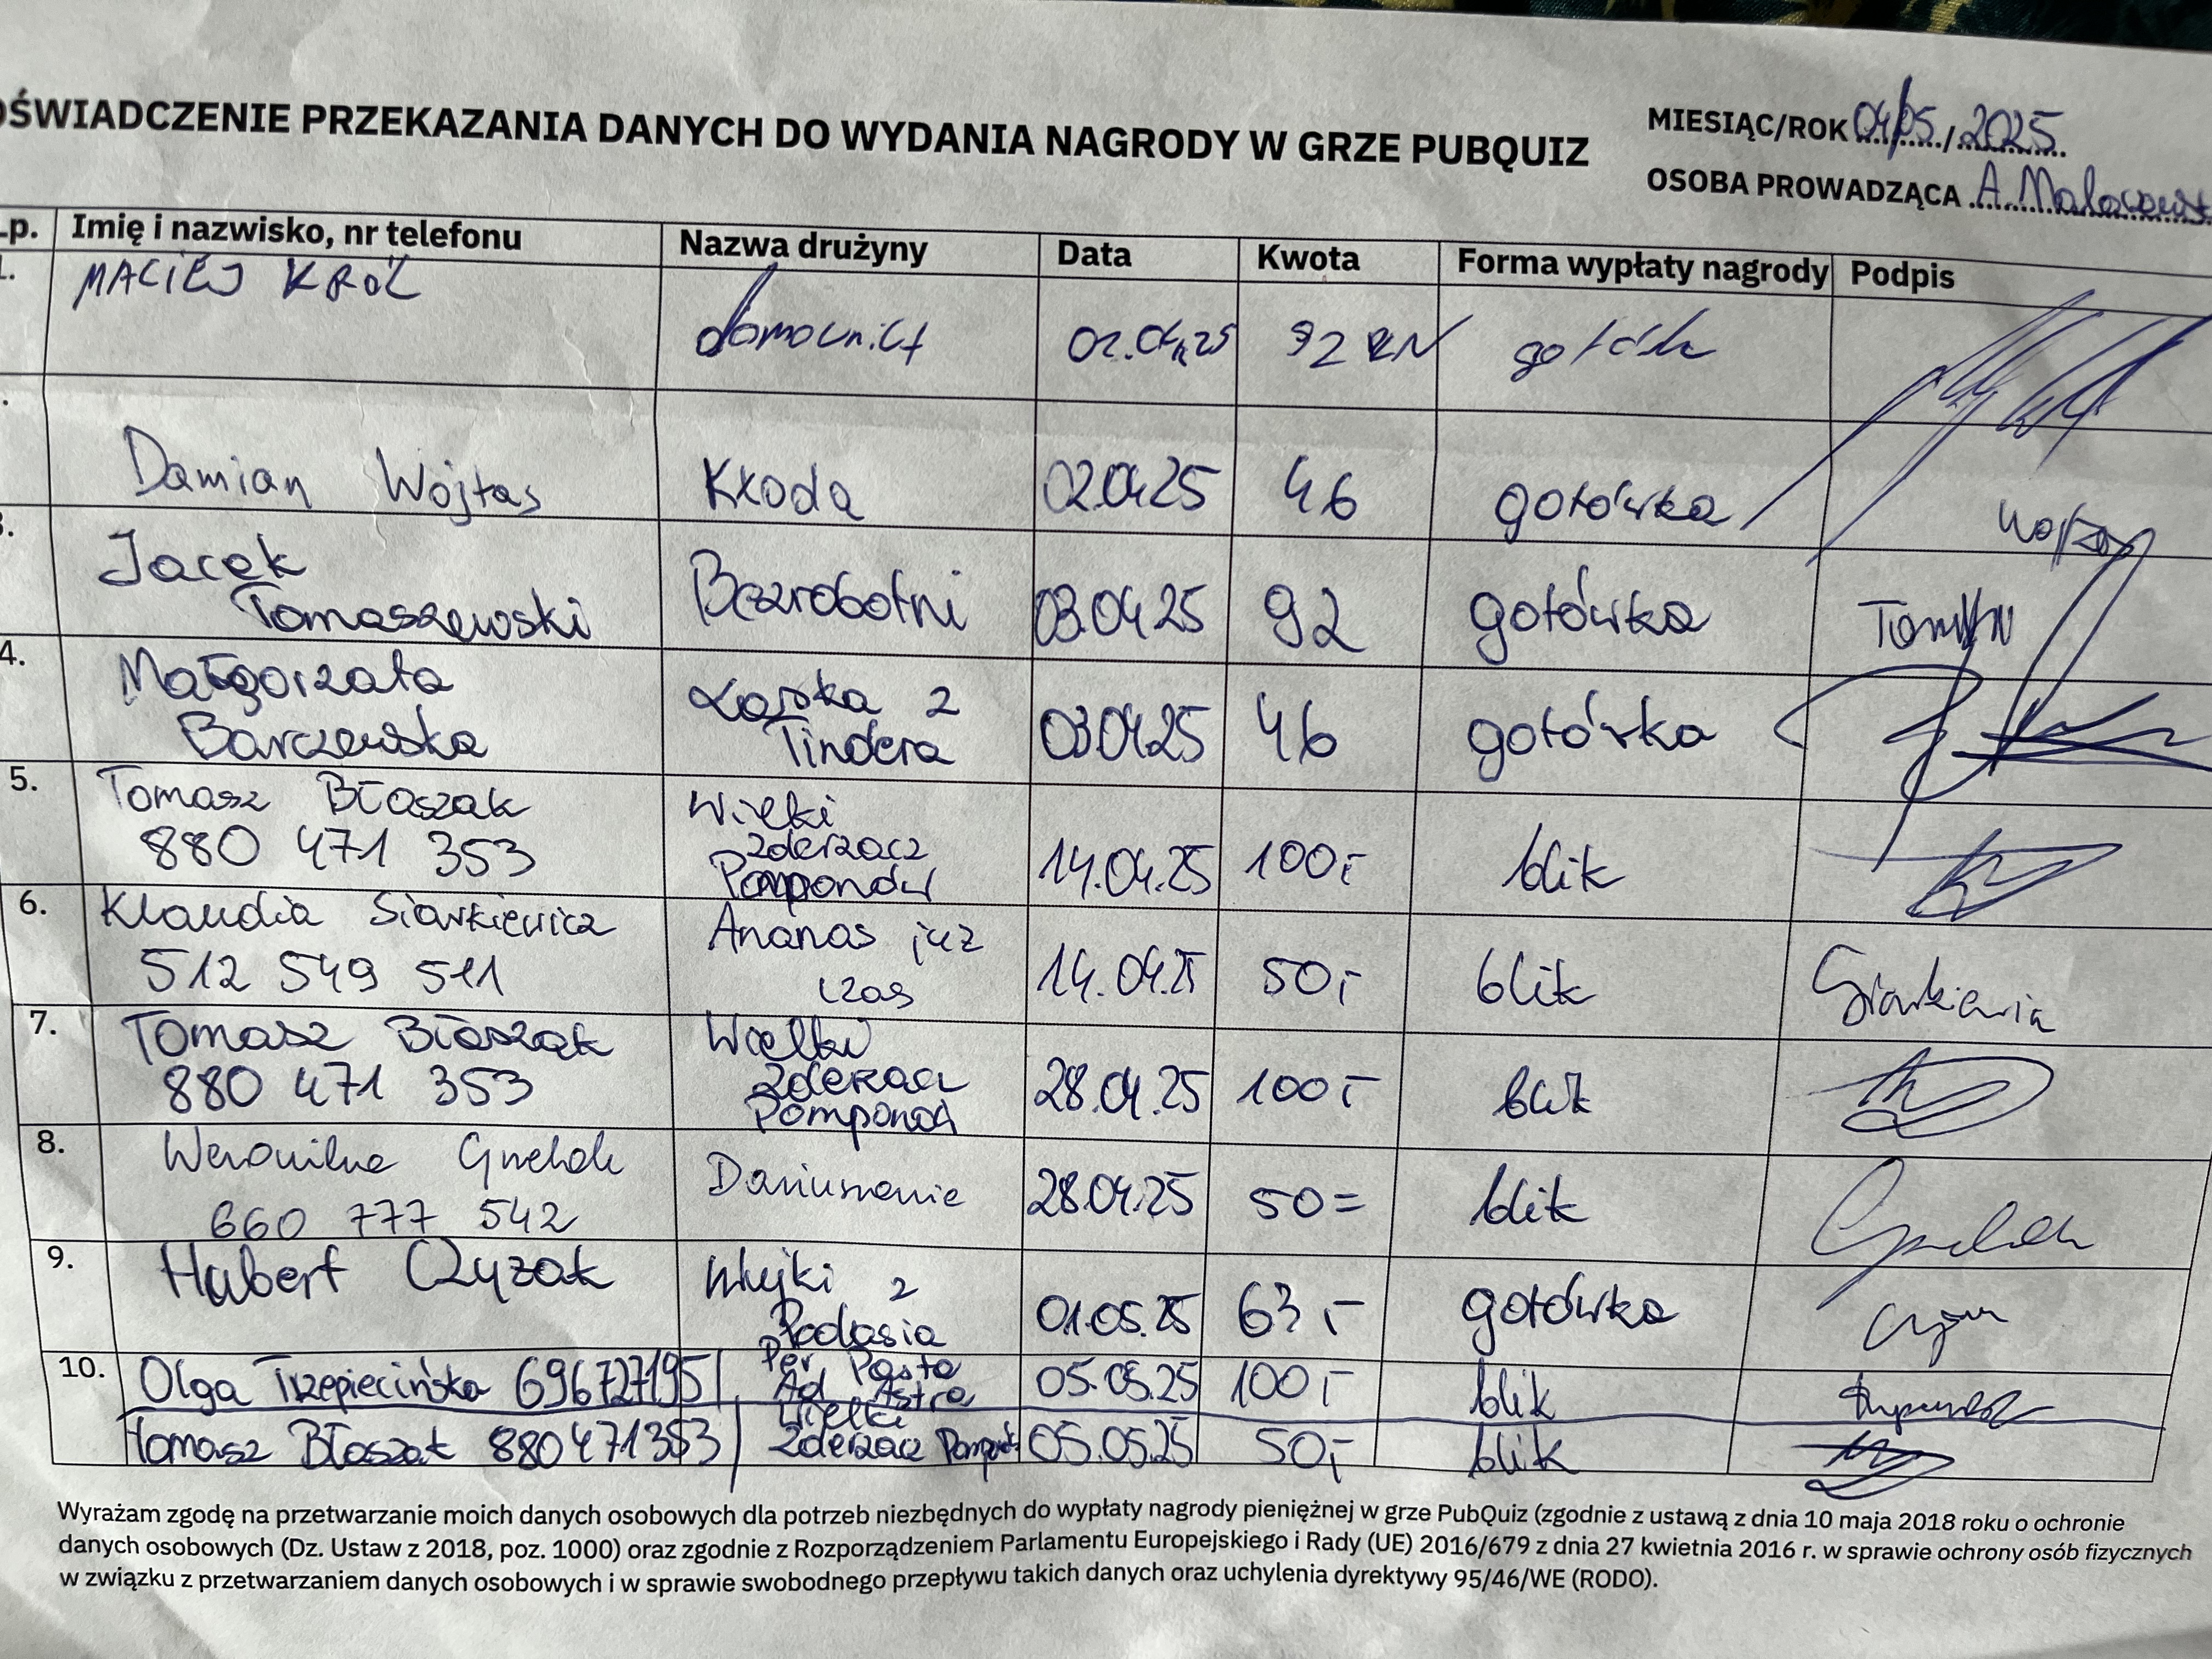 OŚWIADCZENIE PRZEKAZANIA DANYCH DO WYDANIA NAGRODY W GRZE PUBQUIZ
MIESIĄC/ROK 04/05/2025
OSOBA PROWADZĄCA A.
Lp. Imię i nazwisko, nr telefonu Nazwa drużyny Data Kwota Forma wypłaty nagrody Podpis
1. MACIEJ KRÓL
02.04.25 92 gotówka
Damian Wojtas Kxoda 02.04.25 46 gotówka
3. Jacek
Tomaszewski Bezrobotni 03.04.25 92 gotówka
4. Małgorzata
Barczewska Laska z
Tindera 03.04.25 46 gotówka
5. Tomasz Błaszak
880 471 353 Wielki
zderzacz
Pomponów 14.04.25 100,- blik
6. Klaudia Siarkiewicz
512 549 511 Ananas już
czas 14.04.25 50,- blik Siarkiewicz
7. Tomasz Błaszak
880 471 353 Wielki
zderzacz
Pomponów 28.04.25 100,- blik
8. Weronika
660 777 542 28.04.25 50= blik
9. Hubert Czyżak Wujki z
Podlasia 01.05.25 63,- gotówka
10. Olga Trzepiecińska 696727195 Per Pasta
Ad Astra 05.05.25 100,- blik
Tomasz Błaszak 880471353 Wielki
zderzacz 05.05.25 50,- blik
Wyrażam zgodę na przetwarzanie moich danych osobowych dla potrzeb niezbędnych do wypłaty nagrody pieniężnej w grze PubQuiz (zgodnie z ustawą z dnia 10 maja 2018 roku o ochronie
danych osobowych (Dz. Ustaw z 2018, poz. 1000) oraz zgodnie z Rozporządzeniem Parlamentu Europejskiego i Rady (UE) 2016/679 z dnia 27 kwietnia 2016 r. w sprawie ochrony osób fizycznych
w związku z przetwarzaniem danych osobowych i w sprawie swobodnego przepływu takich danych oraz uchylenia dyrektywy 95/46/WE (RODO).